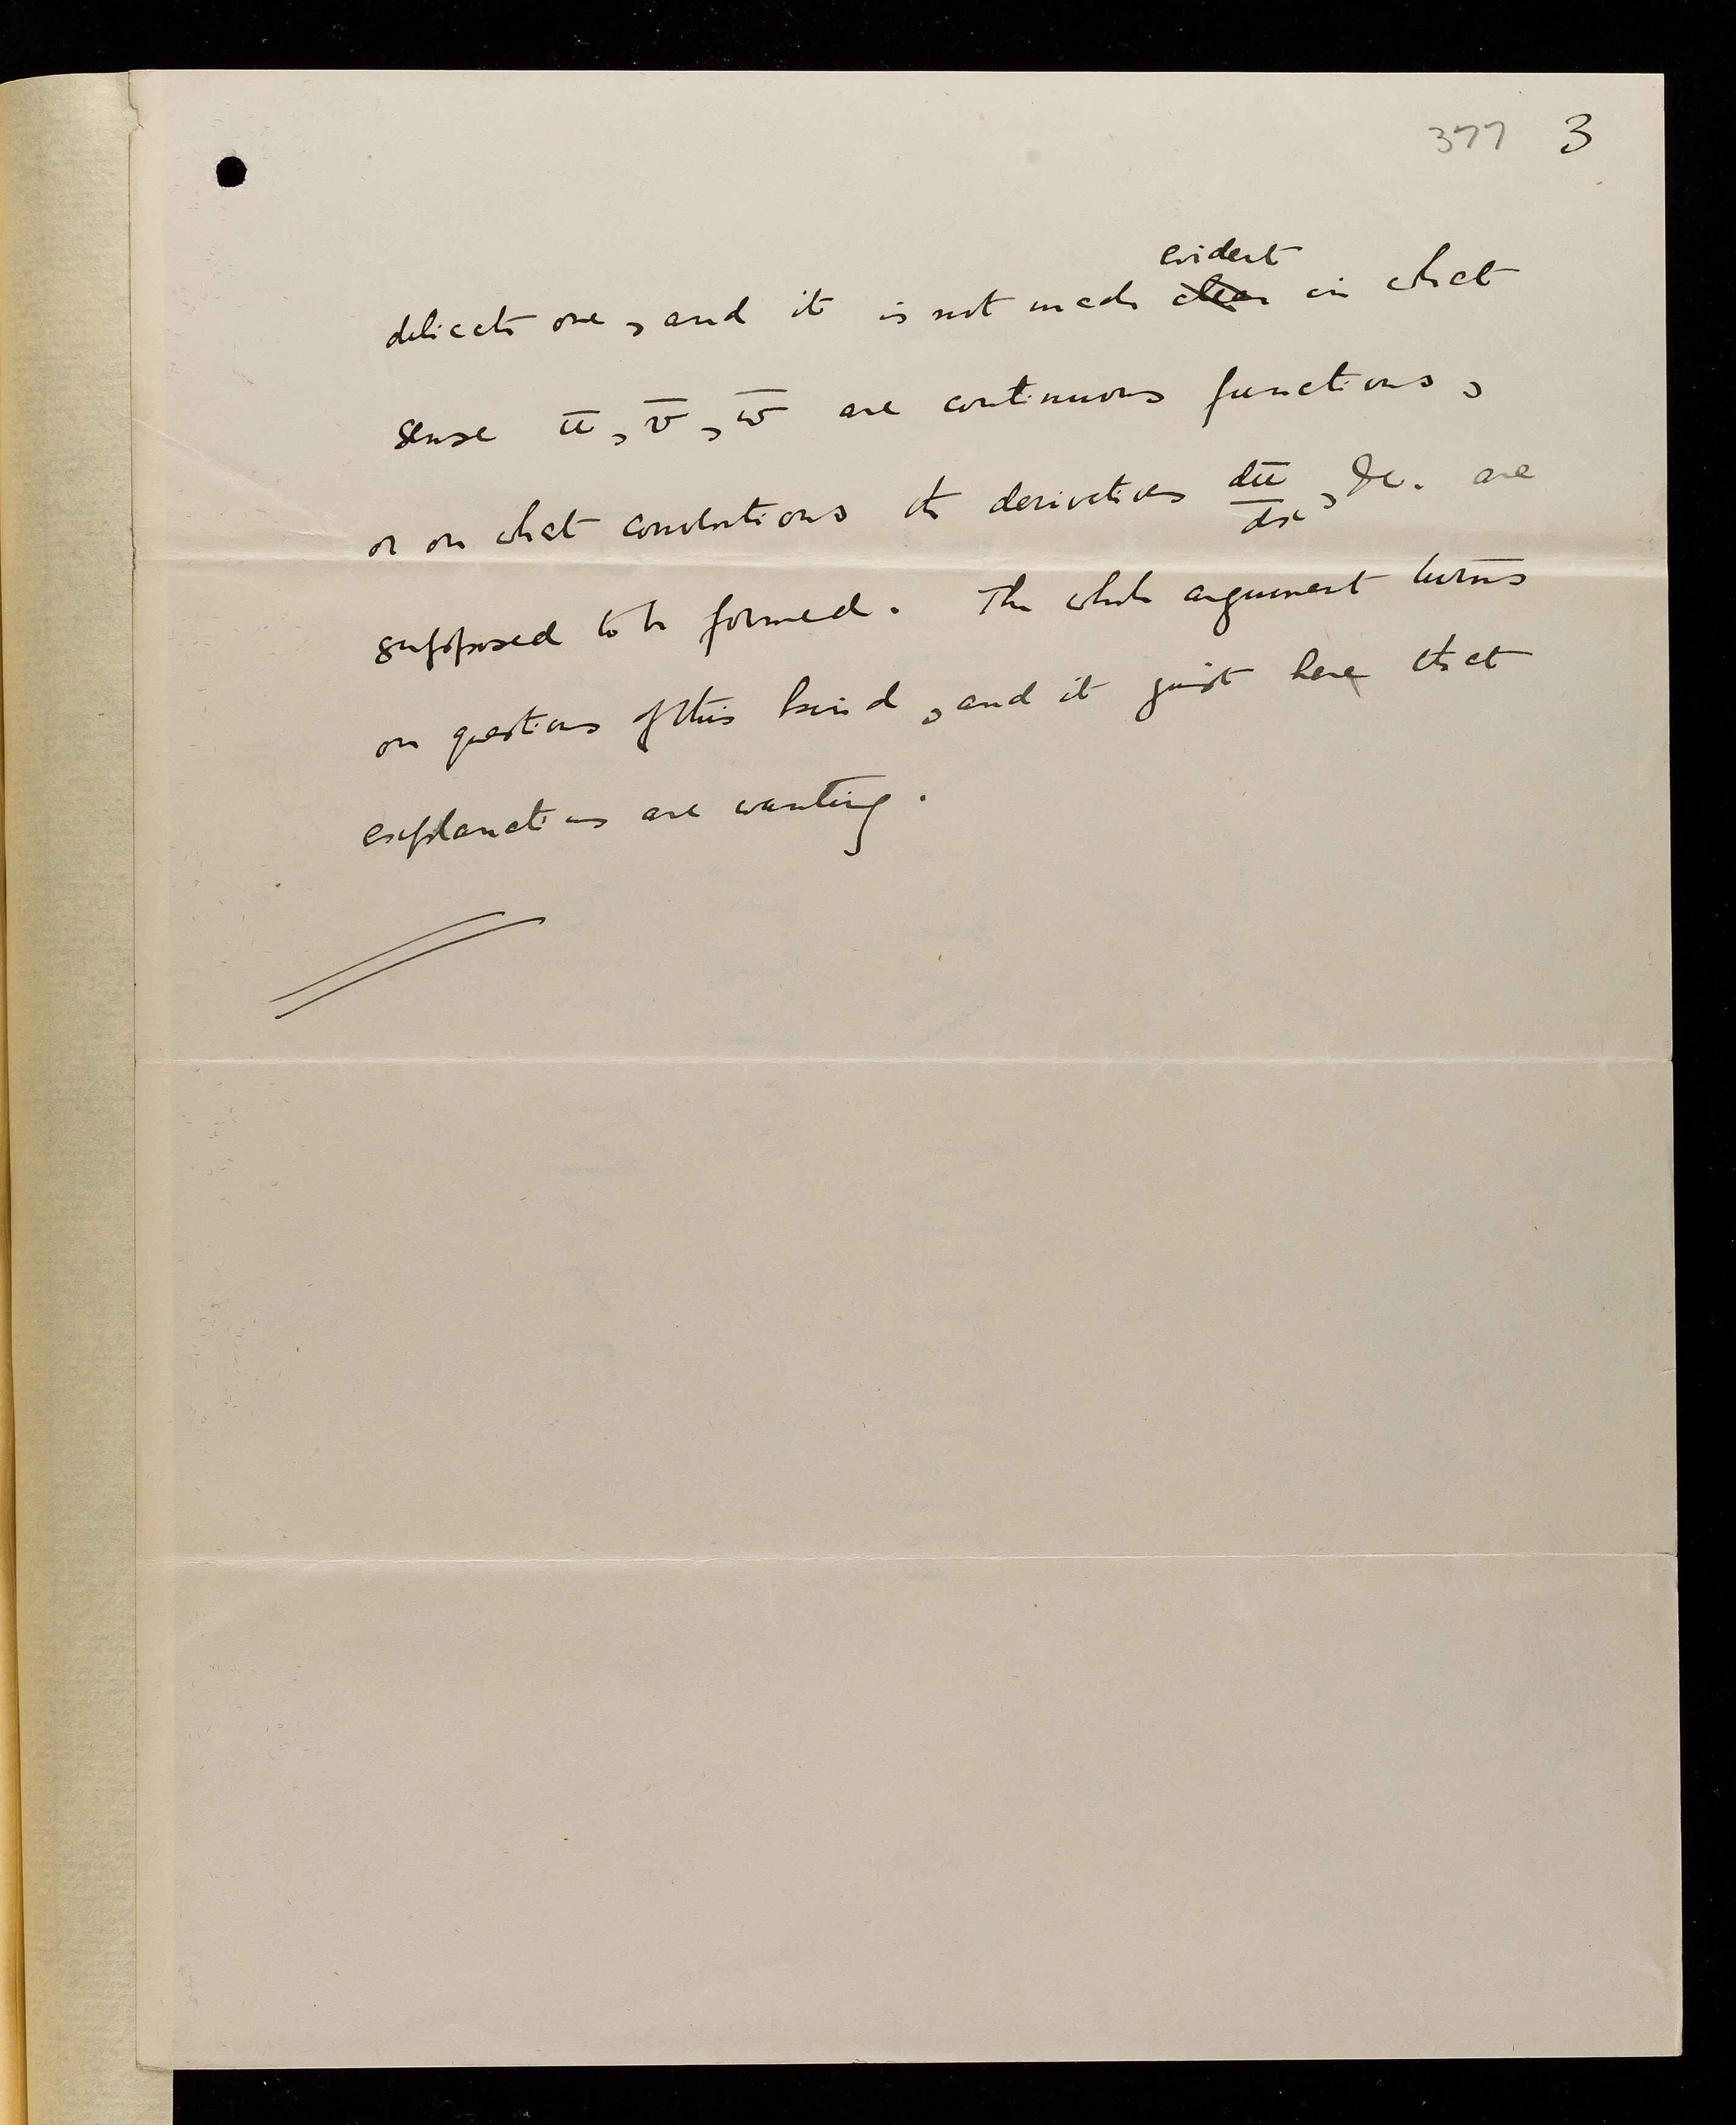 377 3
evident
delicate one, and it is not made clear in what
sense ū, v̄, w̄ are continuous functions,
or on what conventions the derivatives dū/dx, &c. are
supposed to be formed. The whole argument turns
on questions of this kind, and it is just here that
explanations are wanting.